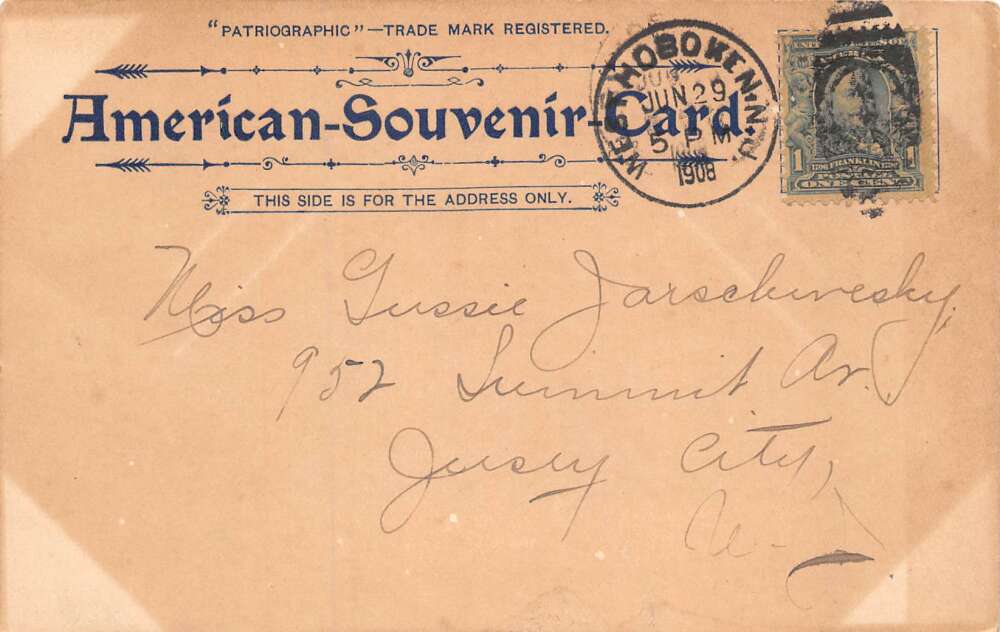 "PATRIOGRAPHIC"—TRADE MARK REGISTERED.
American-Souvenir-Card.
THIS SIDE IS FOR THE ADDRESS ONLY.
WEST HOBOKEN, N.J.
JUN 29
5 PM
1908
1 FRANKLIN 1
ONE CENT
Miss Gussie Jarschwesky,
952 Summit Av.,
Jersey City,
N-J